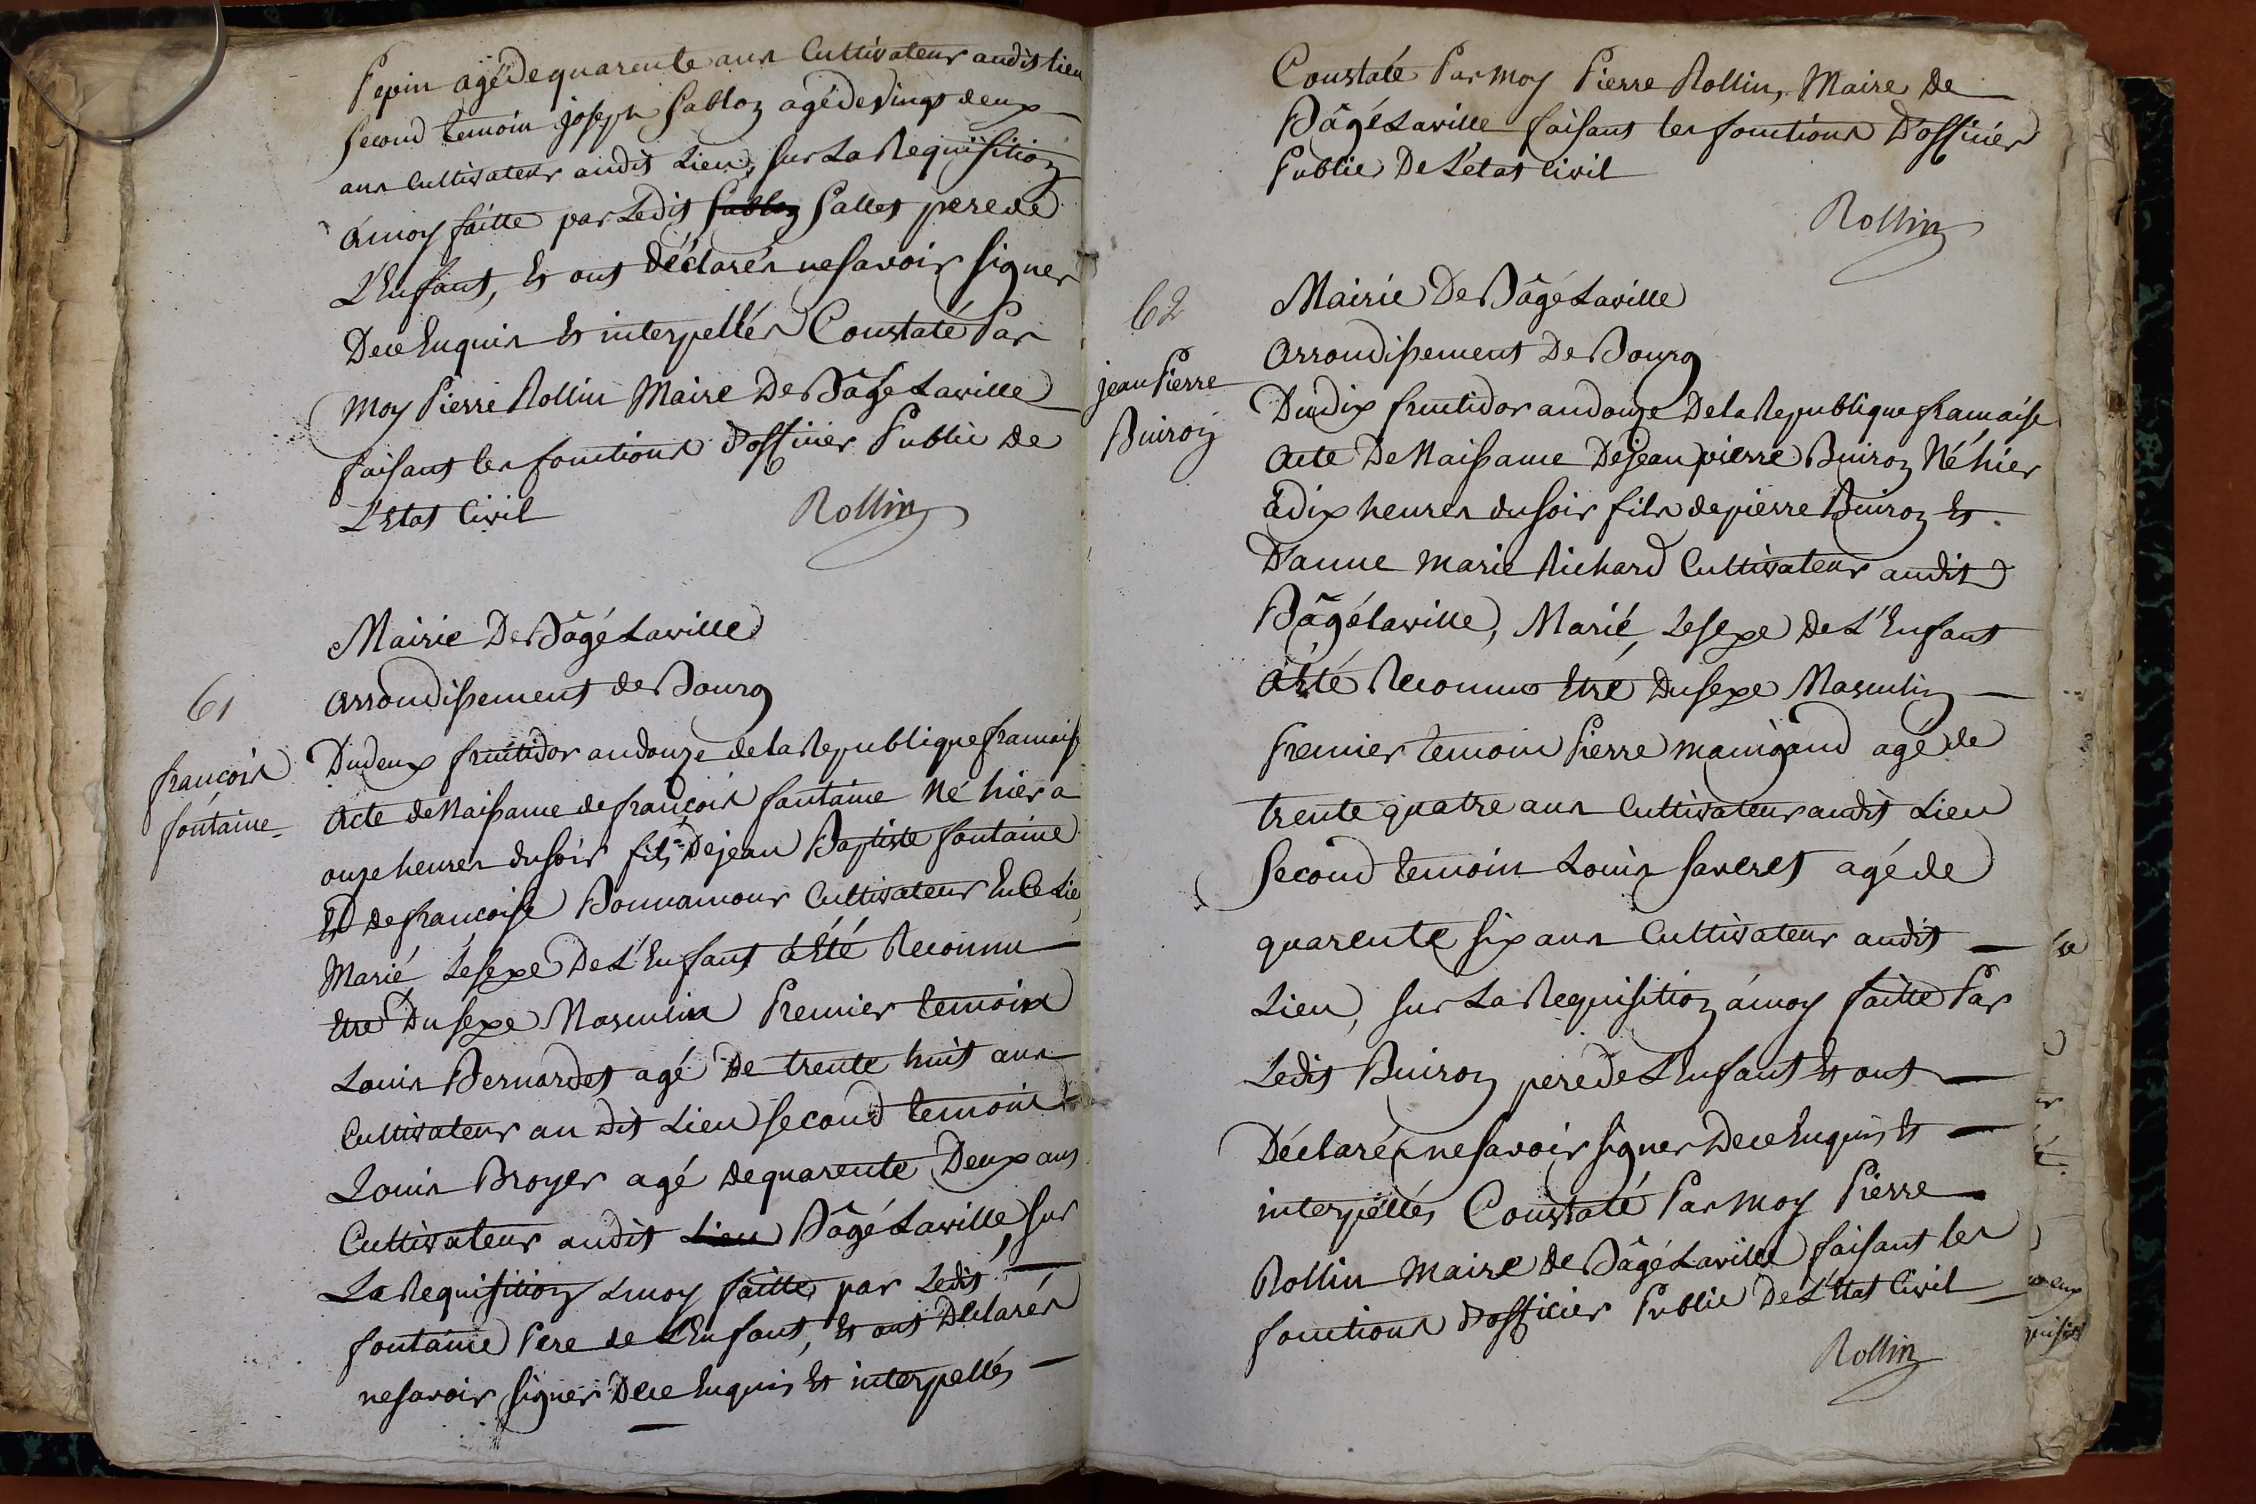 Pepin agé de quarente ans Cultivateur audit lieu
second temoin joseph Sabloz agé de Vingt deux
ans Cultivateur audit Lieu, sur La Requisition
à moy faitte par Ledit Sabloz Sallet pere de
L'Enfant, Et ont déclarés ne savoir signer
De ce Enquis Et interpellés Constaté Par
moy Pierre Rollin Maire De Bâgé Laville
faisant les fonctions d'officier Public de
L'Etat Civil
Rollin
Mairie De Bâgé Laville
Arrondissement de Bourg
61
francois
fontaine
Du deux fructidor an douze de la Republique francaise
Acte de Naissance de francois fontaine Né hier a
onze heures du soir fils De jean Baptiste fontaine
Et de francoise Bonnamour Cultivateur En Ce Lieu
Marié, Le sexe De L'Enfant à Eté Reconnu
Etre Du sexe Masculin Premier temoin
Louis Bernardet agé De trente huit ans
Cultivateur au dit Lieu second temoin
Louis Broyer agé de quarente Deux ans
Cultivateur audit Lieu Bâgé Laville, sur
La Requisition à moy faitte par Ledit
fontaine Pere de L'Enfant, Et ont Declarés
ne savoir signer De ce Enquis Et interpellés
Constaté Par moy Pierre Rollin, Maire De
Bâgé Laville faisant les fonctions D'officier
Public De L'etat Civil
Rollin
62
jean Pierre
Buiron
Mairie De Bâgé Laville
Arrondissement De Bourg
Du dix fructidor an douze De la Republique francaise
Acte De Naissance De jean pierre Buiron Né hier
à dix heures du soir fils de pierre Buiron Et
D'anne Marie Richard Cultivateur audit
Bâgé laville, Marié, Le sexe De L'Enfant
à Eté Reconnu Etre Du sexe Masculin
Premier temoin Pierre maingand agé de
trente quatre ans Cultivateur audit Lieu
second temoin Louis saveret agé de
quarente six ans Cultivateur audit
Lieu, sur La Requisition à moy faitte Par
Ledit Buiron pere de L'Enfant Et ont
Déclarés ne savoir signer De ce Enquis Et
interpellés Constaté Par moy Pierre
Rollin Maire de Bâgé Laville faisant les
fonctions d'officier Public De L'Etat Civil
Rollin